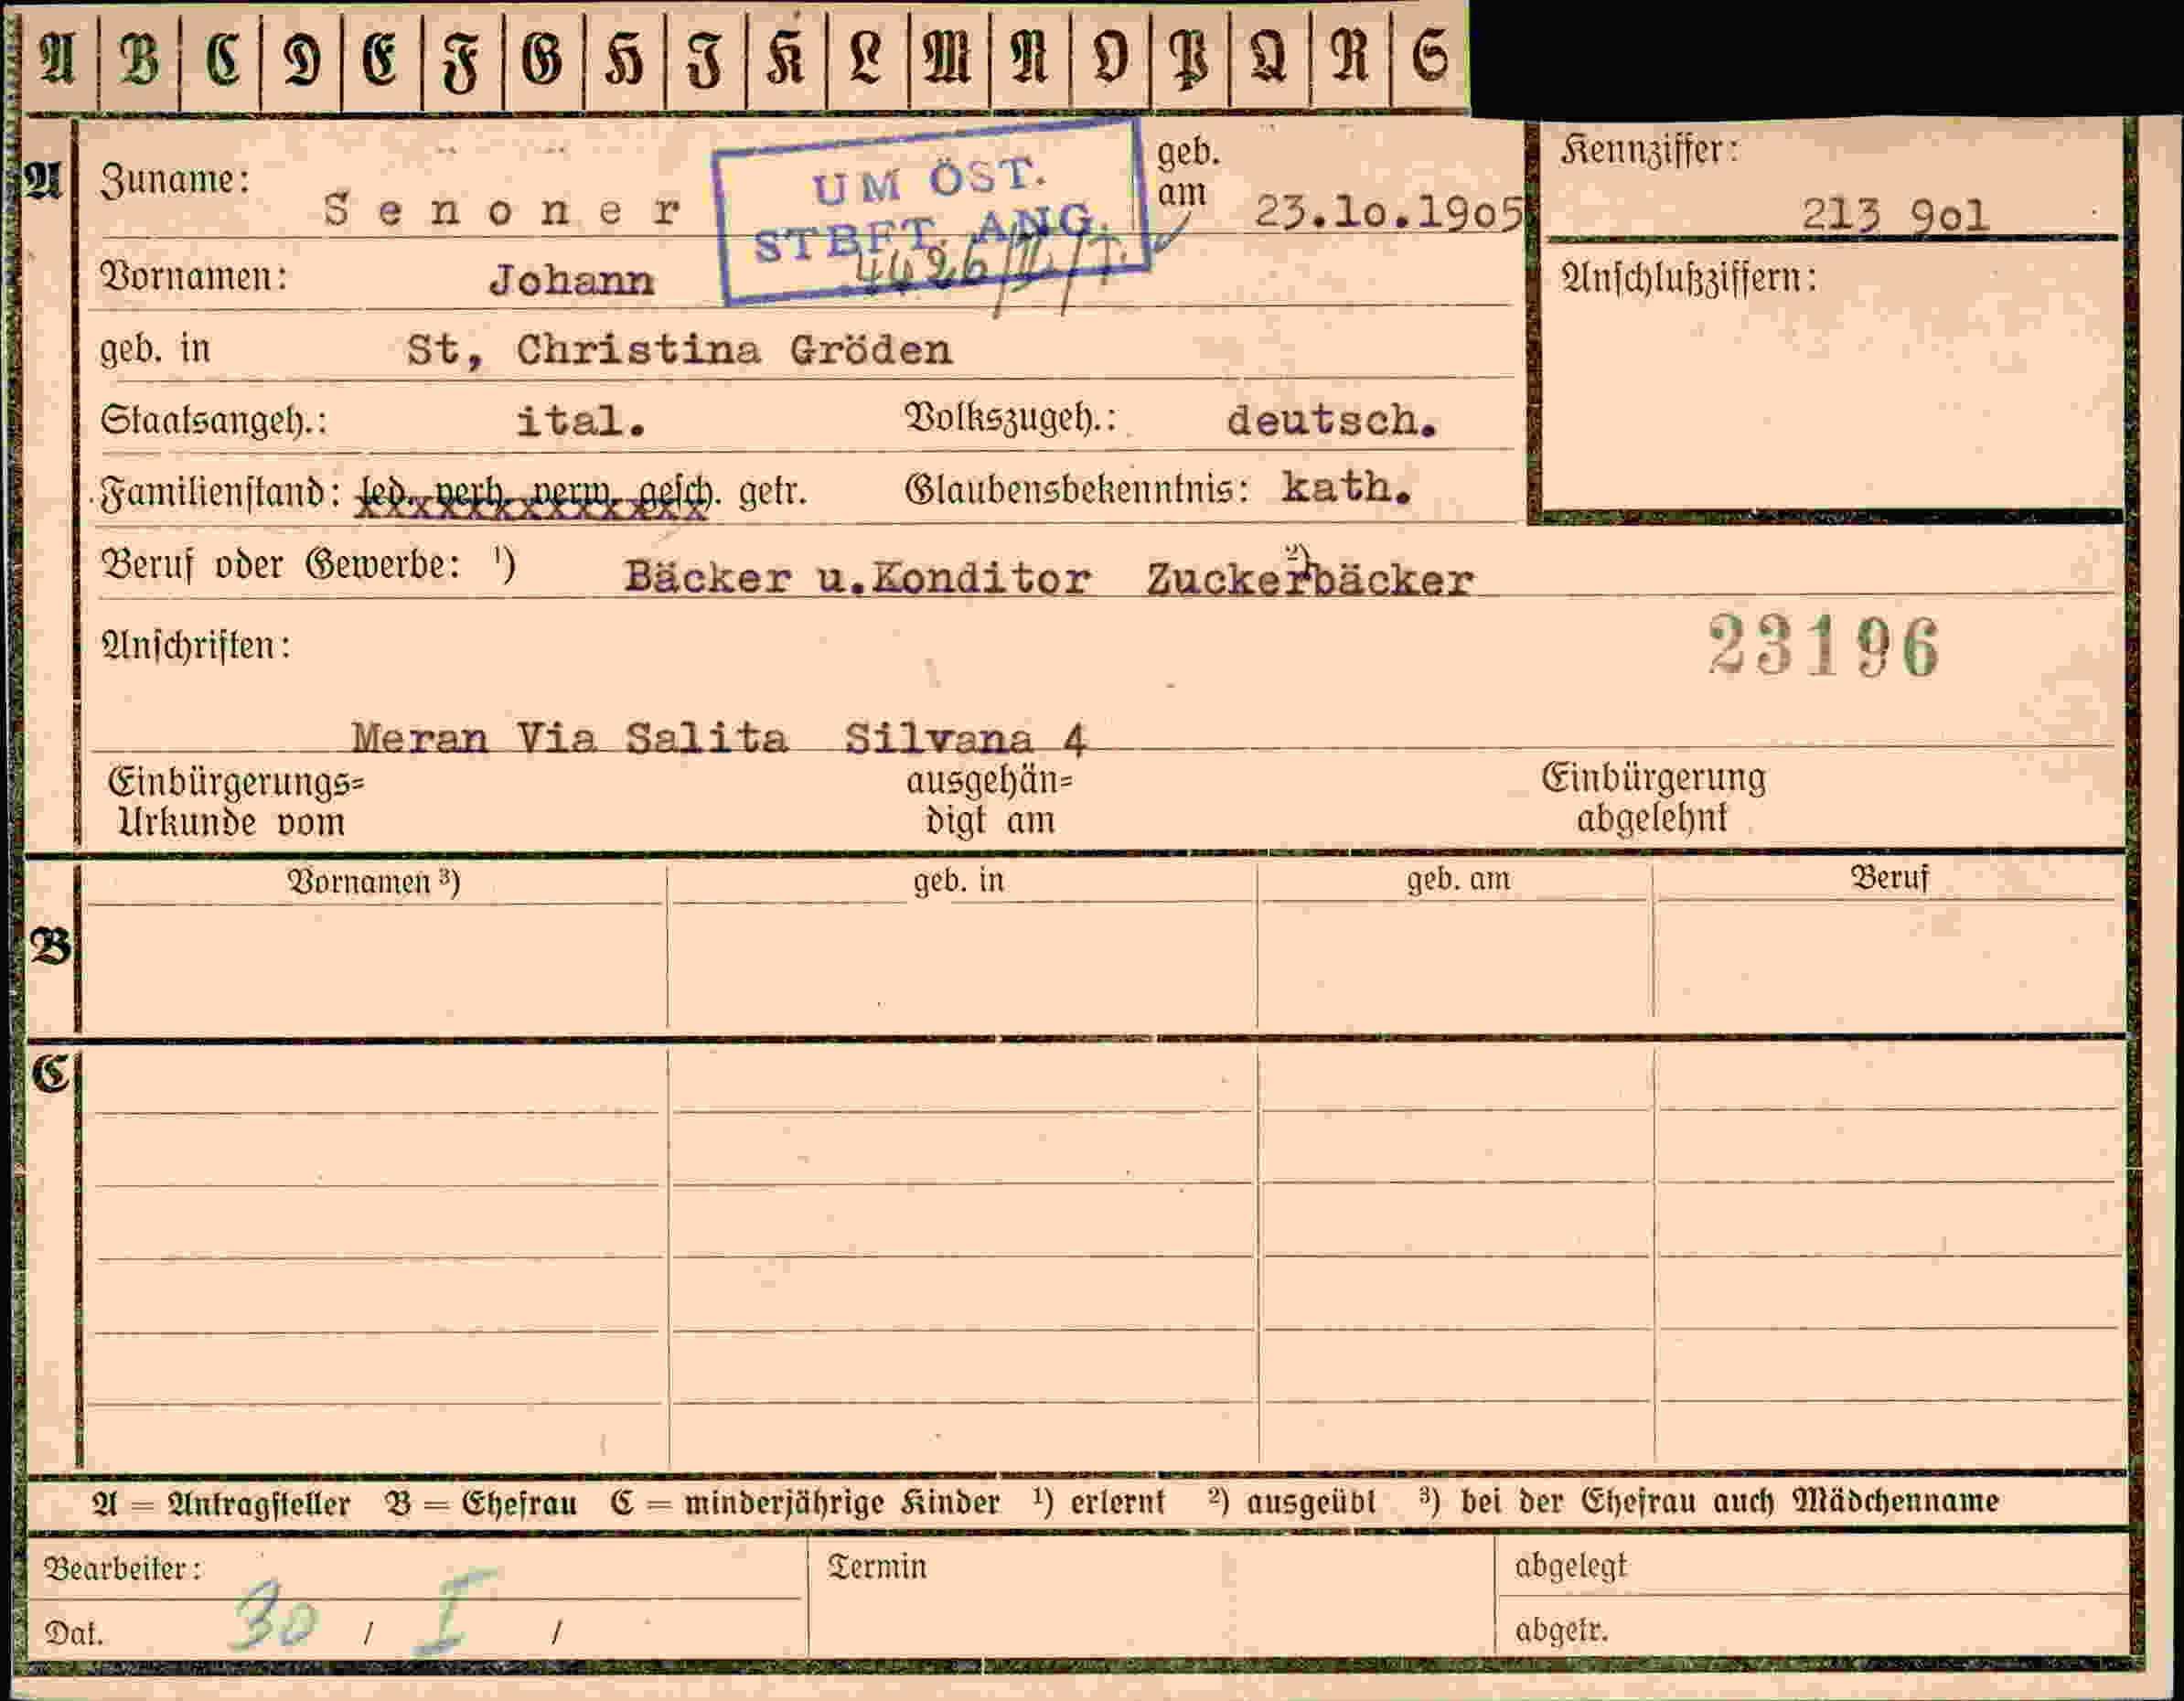 A B C D E F G H J K L M N O P Q R S
A
Zuname: Senoner
UM ÖST.
STBFT. ANG.
geb.
am 23.10.1905
Kennziffer:
213 901
Vornamen: Johann
Anschlußziffern:
geb. in St, Christina Gröden
Staatsangeh.: ital. Volkszugeh.: deutsch.
Familienstand: led. verh. verw. gesch. getr. Glaubensbekenntnis: kath.
Beruf oder Gewerbe: ¹) Bäcker u.Konditor ²) Zuckerbäcker
Anschriften:
23196
Meran Via Salita Silvana 4
Einbürgerungs=
Urkunde vom
ausgehän=
digt am
Einbürgerung
abgelehnt
B
Vornamen ³) geb. in geb. am Beruf
C
A = Antragsteller B = Ehefrau C = minderjährige Kinder ¹) erlernt ²) ausgeübt ³) bei der Ehefrau auch Mädchenname
Bearbeiter: Termin abgelegt
Dat. 30 / I / abgetr.